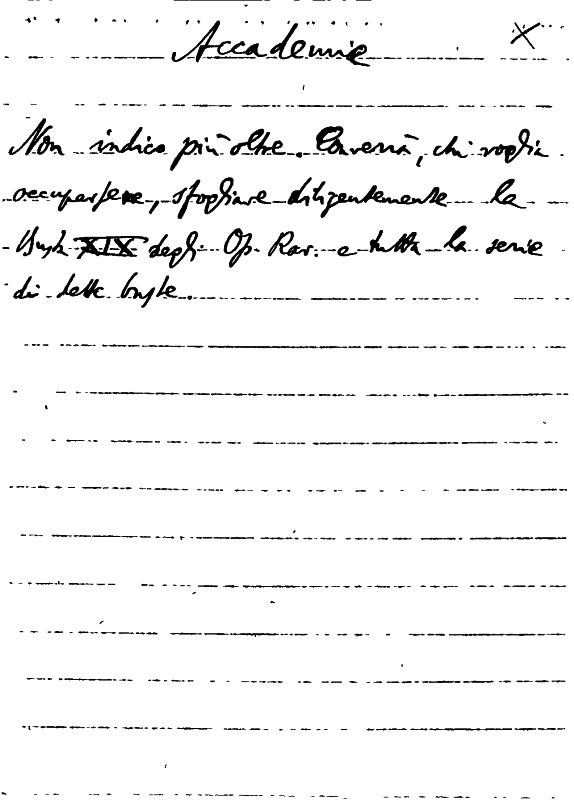 Accademie X
Non indico più oltre. Converrà, chi voglia
occuparsene, sfogliare diligentemente la
Busta XIX degli Op. Rav. e tutta la serie
di dette buste.